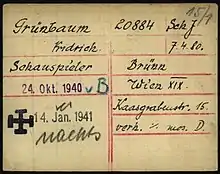 Grünbaum 20884 Sch J 15/1
Fridrich. 7.4.80.
Schauspieler Brünn
24. Okt. 1940 v B Wien XIX.
Kaasgrabenstr. 15.
14. Jan. 1941 verh. % mos. D.
nachts